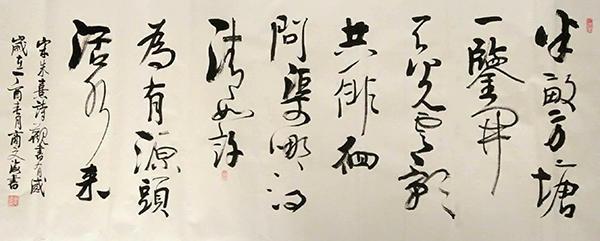 半畝方塘
一鑒開
天光雲影
共徘徊
問渠哪得
清如許
為有源頭
活水來
宋朱熹詩觀書有感
歲在丁酉月商文書